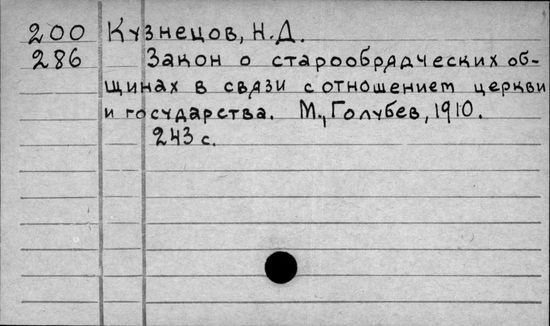 200 Кузнецов, Н.Д.
286 Закон о старообрядческих об-
щинах в связи с отношением церкви
и государства. М., Голубев, 1910.
243 с.